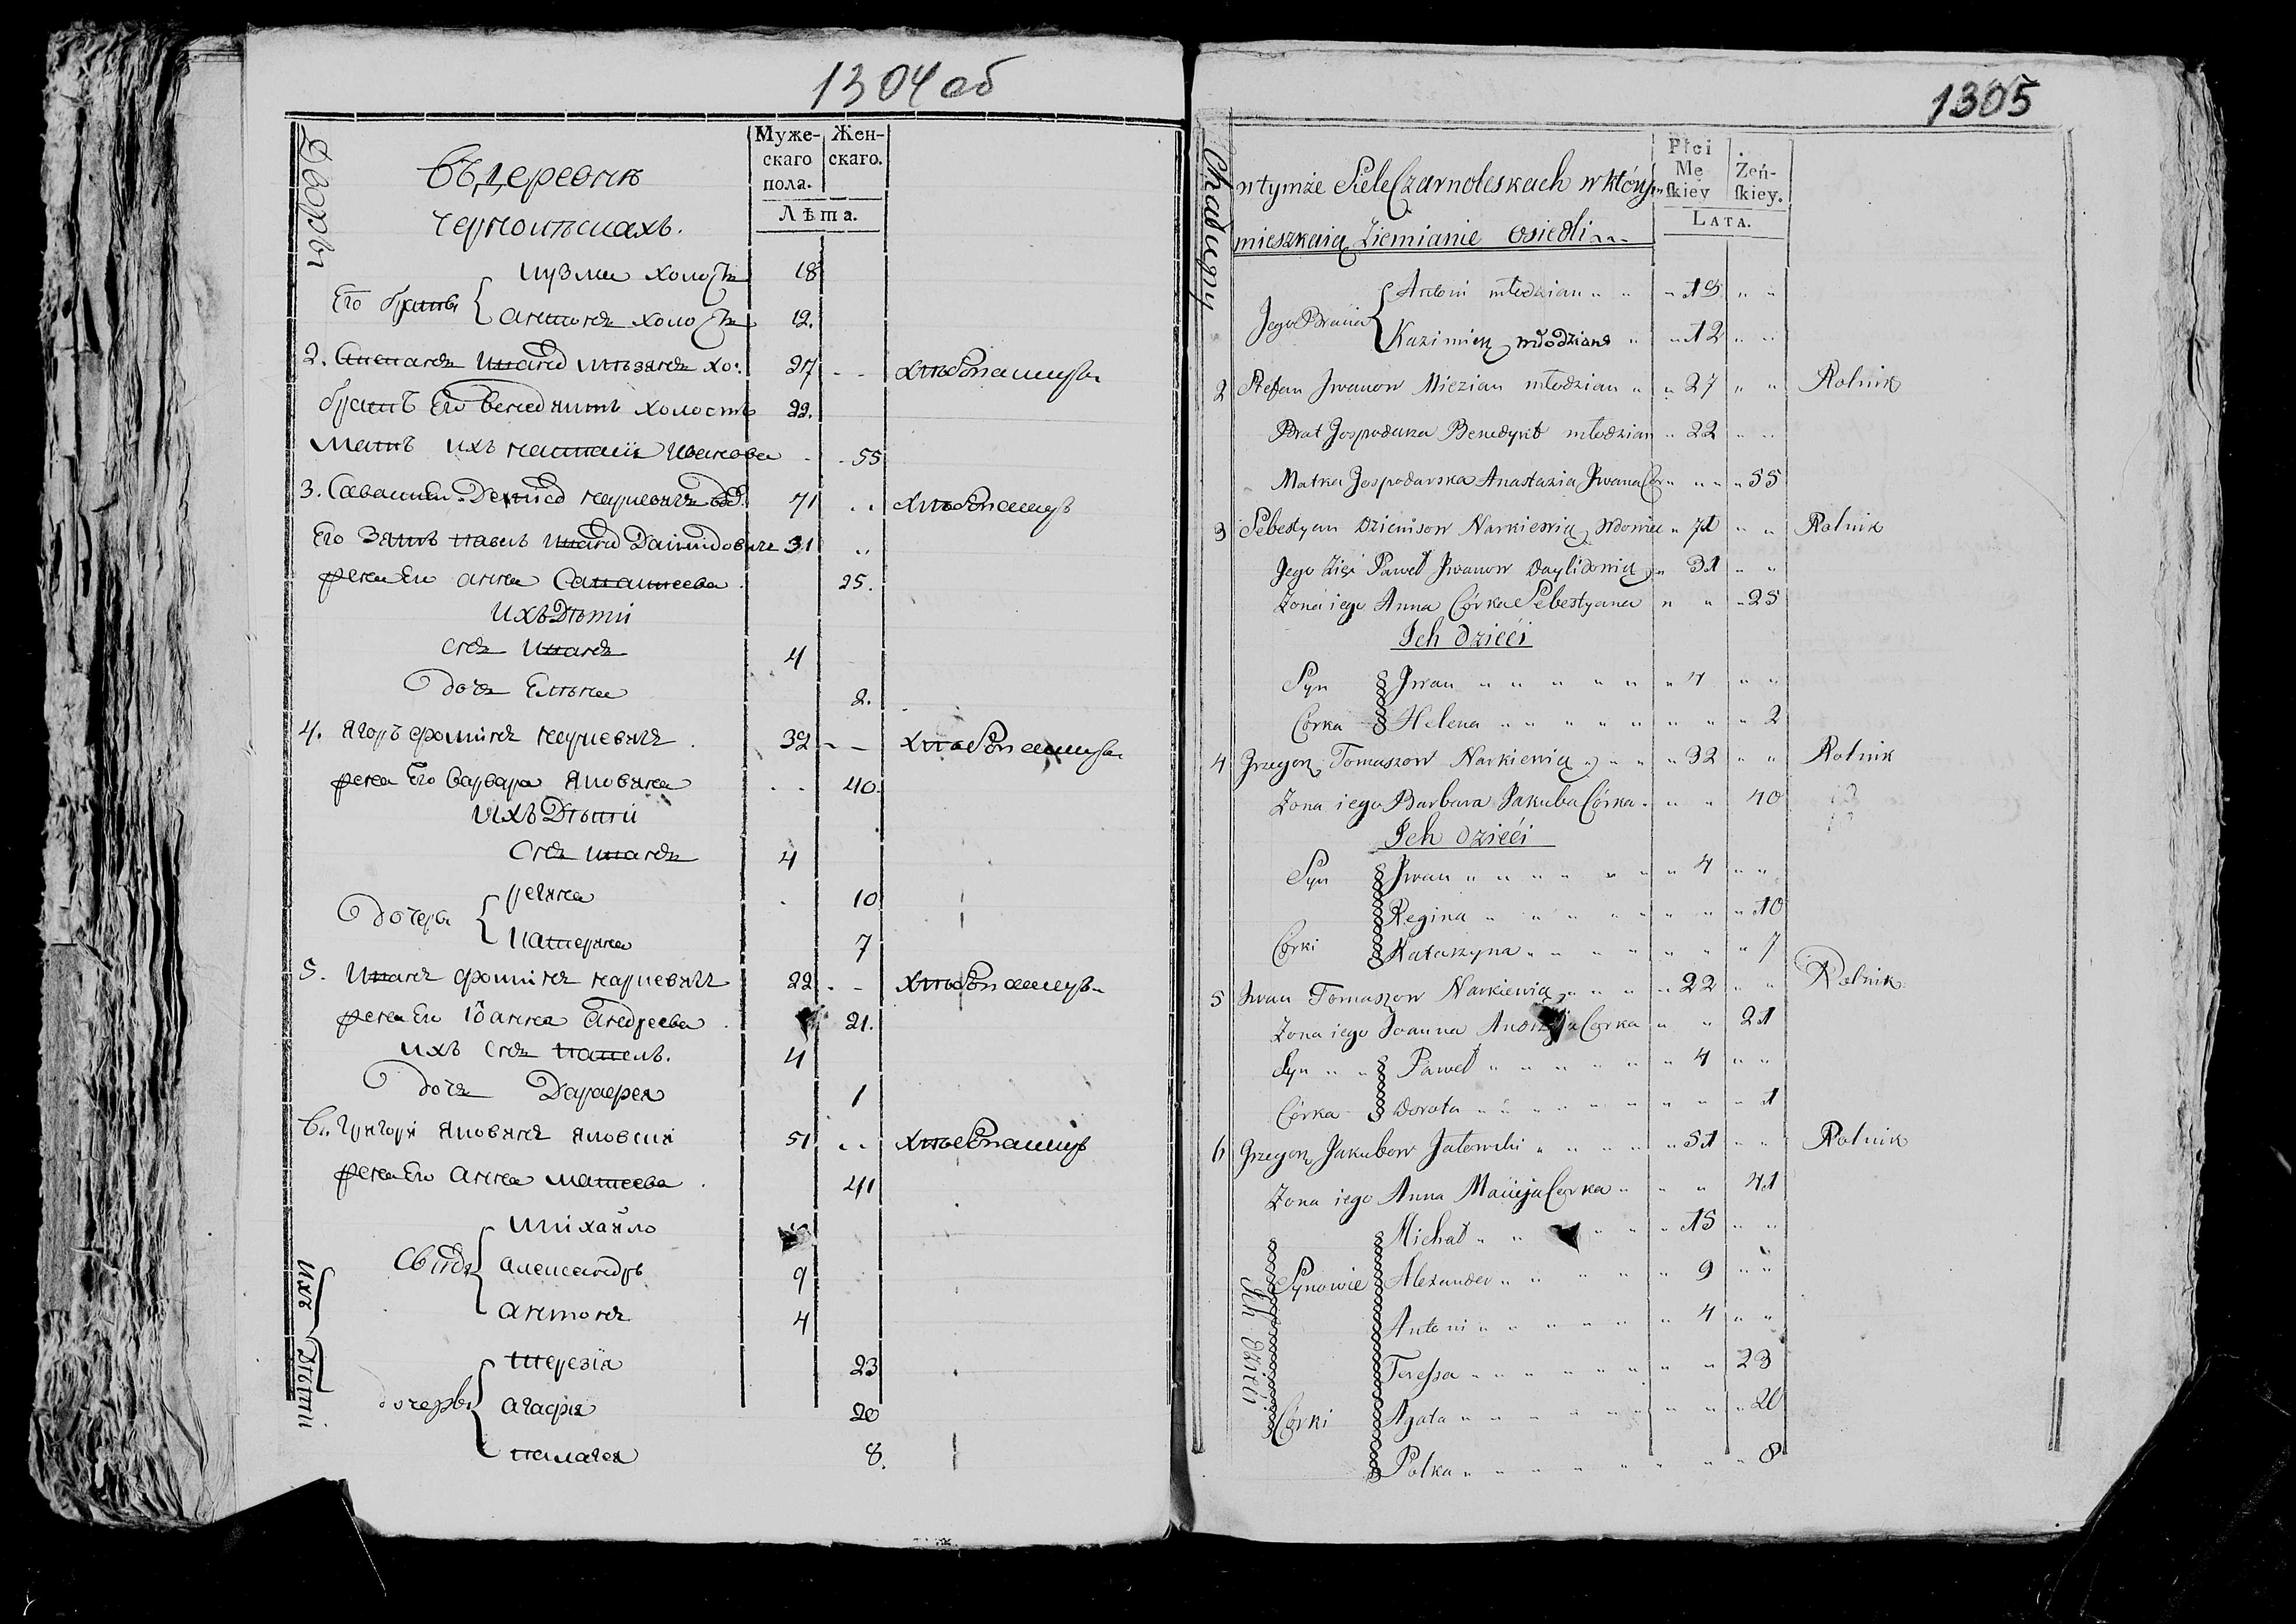 1304 об
Дворы
въ деревни
Чернолѣскахъ.
Муже-
скаго
пола.
Жен-
скаго.
Лѣта.
Его браты
кузма холосты 18
антонъ холосты 12.
2. Степанъ Ивановъ мѣзянъ хо: 27 хлѣбопашецъ
братъ Его венедиктъ холостъ 22.
мать ихъ настасія Иванова 55
3. Савастей Денисовъ наркевичъ вд. 71 хлѣбопашецъ
Его Зять павелъ Ивановъ Даилидовичъ 31
жена Его анна Савастеева 25.
ихъ Дѣти
снъ иванъ 4
дочь Елѣна 2.
4. Ягоръ фоминъ наркевичъ 32 хлѣбопашецъ
жена Его варвара Яковлва 40.
ихъ Дѣти
Снъ иванъ 4
дочеры
регина 10
катерина 7
5. Иванъ фоминъ наркевичъ 22 хлѣбопашецъ
жена Его Іоанна Андреева 21.
ихъ снъ павелъ. 4
дочь Дарафея 1
6. Григори Яковлвъ Яловски 51 хлѣбопашецъ
жена Его анна матеева 41
Ихъ Дѣти
Сыны
михайло
александръ 9
антонъ 4
дочеры
терезія 23
агафія 20
пелагея 8.
1305
Chałupy
w tymże Siele Czarnoleskach w którym
mieszkaią Ziemianie osiedli
Płci
Mę
skiey
Żeń-
skiey.
LATA.
Jego Bracia
Antoni młodzian 18
Kazimierz młodzian 12
2 Stefan Jwanow Miezian młodzian 27 Rolnik
Brat Gospodarza Benedykt młodzian 22
Matka Gospodarska Anastazia Jwana Cor 55
3 Sebestyan Dzienisow Narkiewicz Wdowiec 71 Rolnik
Jego Zięć Paweł Jwanow Daylidowicz 31
Żona iego Anna Córka Sebestyana 25
Ich dzieći
Syn Jwan 4
Corka Helena 2
4 Grzegorz Tomaszow Narkiewicz 32 Rolnik
Żona iego Barbara Jakuba Córka 40
Ich dzieći
Syn Jwan 4
Regina 10
Corki
Katarzyna 7
5 Jwan Tomaszow Narkiewicz 22 Rolnik
Żona iego Joanna Andrzeja Corka 21
Syn Paweł 4
Córka Dorota 1
6 Grzegorz Jakubow Jałowski 51 Rolnik
Żona iego Anna Macieja Corka 41
Ich dzieci
Michał 15
Synowie Alexander 9
Antoni 4
Teressa 23
Córki Agata 20
Polka 8